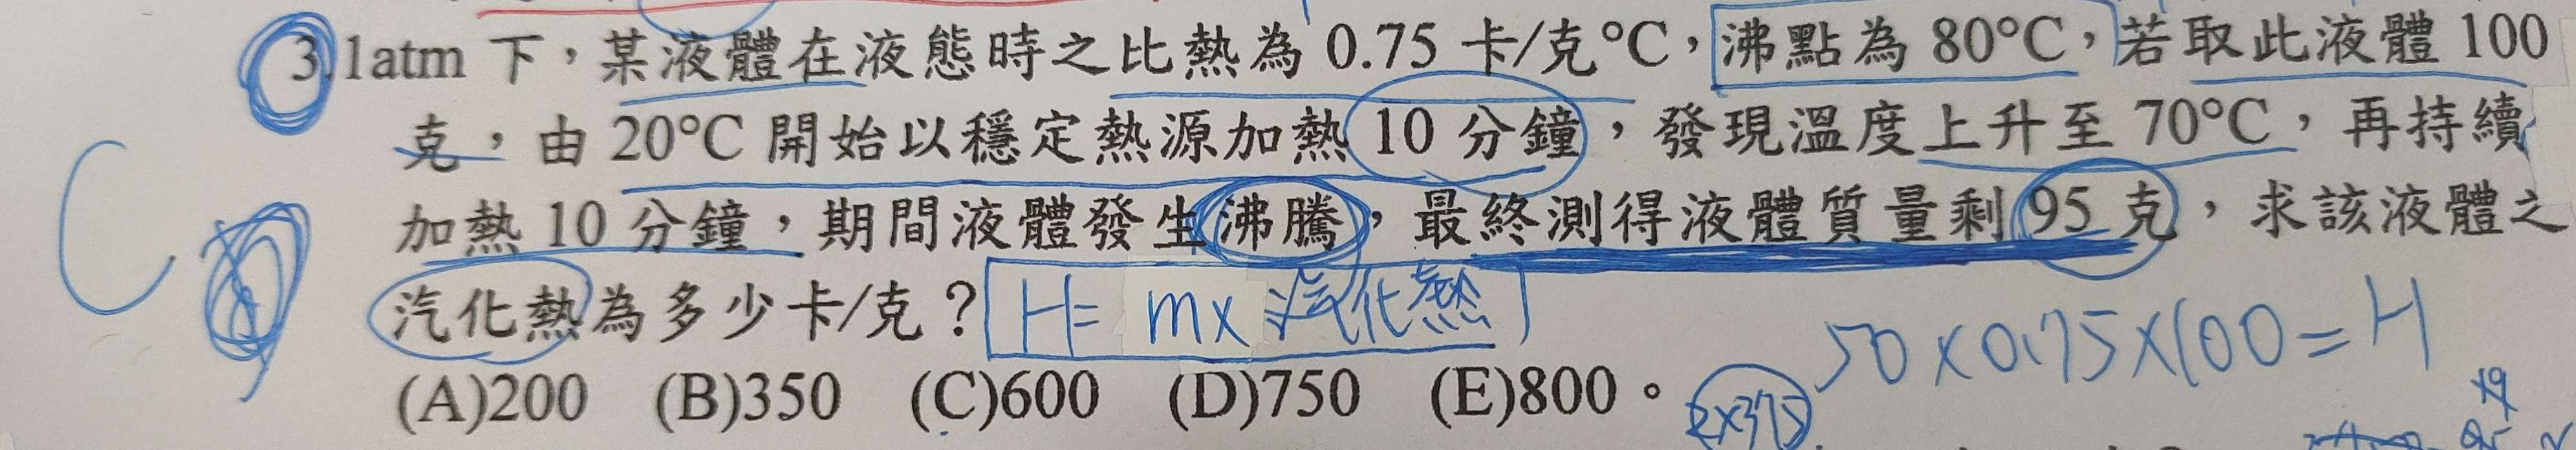 3.1atm 下，某液體在液態時之比熱為 0.75 卡/克°C，沸點為 80°C，若取此液體 100
克，由 20°C 開始以穩定熱源加熱 10 分鐘，發現溫度上升至 70°C，再持續
加熱 10 分鐘，期間液體發生沸騰，最終測得液體質量剩 95 克，求該液體之
汽化熱為多少卡/克？ H= mx 汽化熱
50×0.75×100=H
(A)200 (B)350 (C)600 (D)750 (E)800。
C